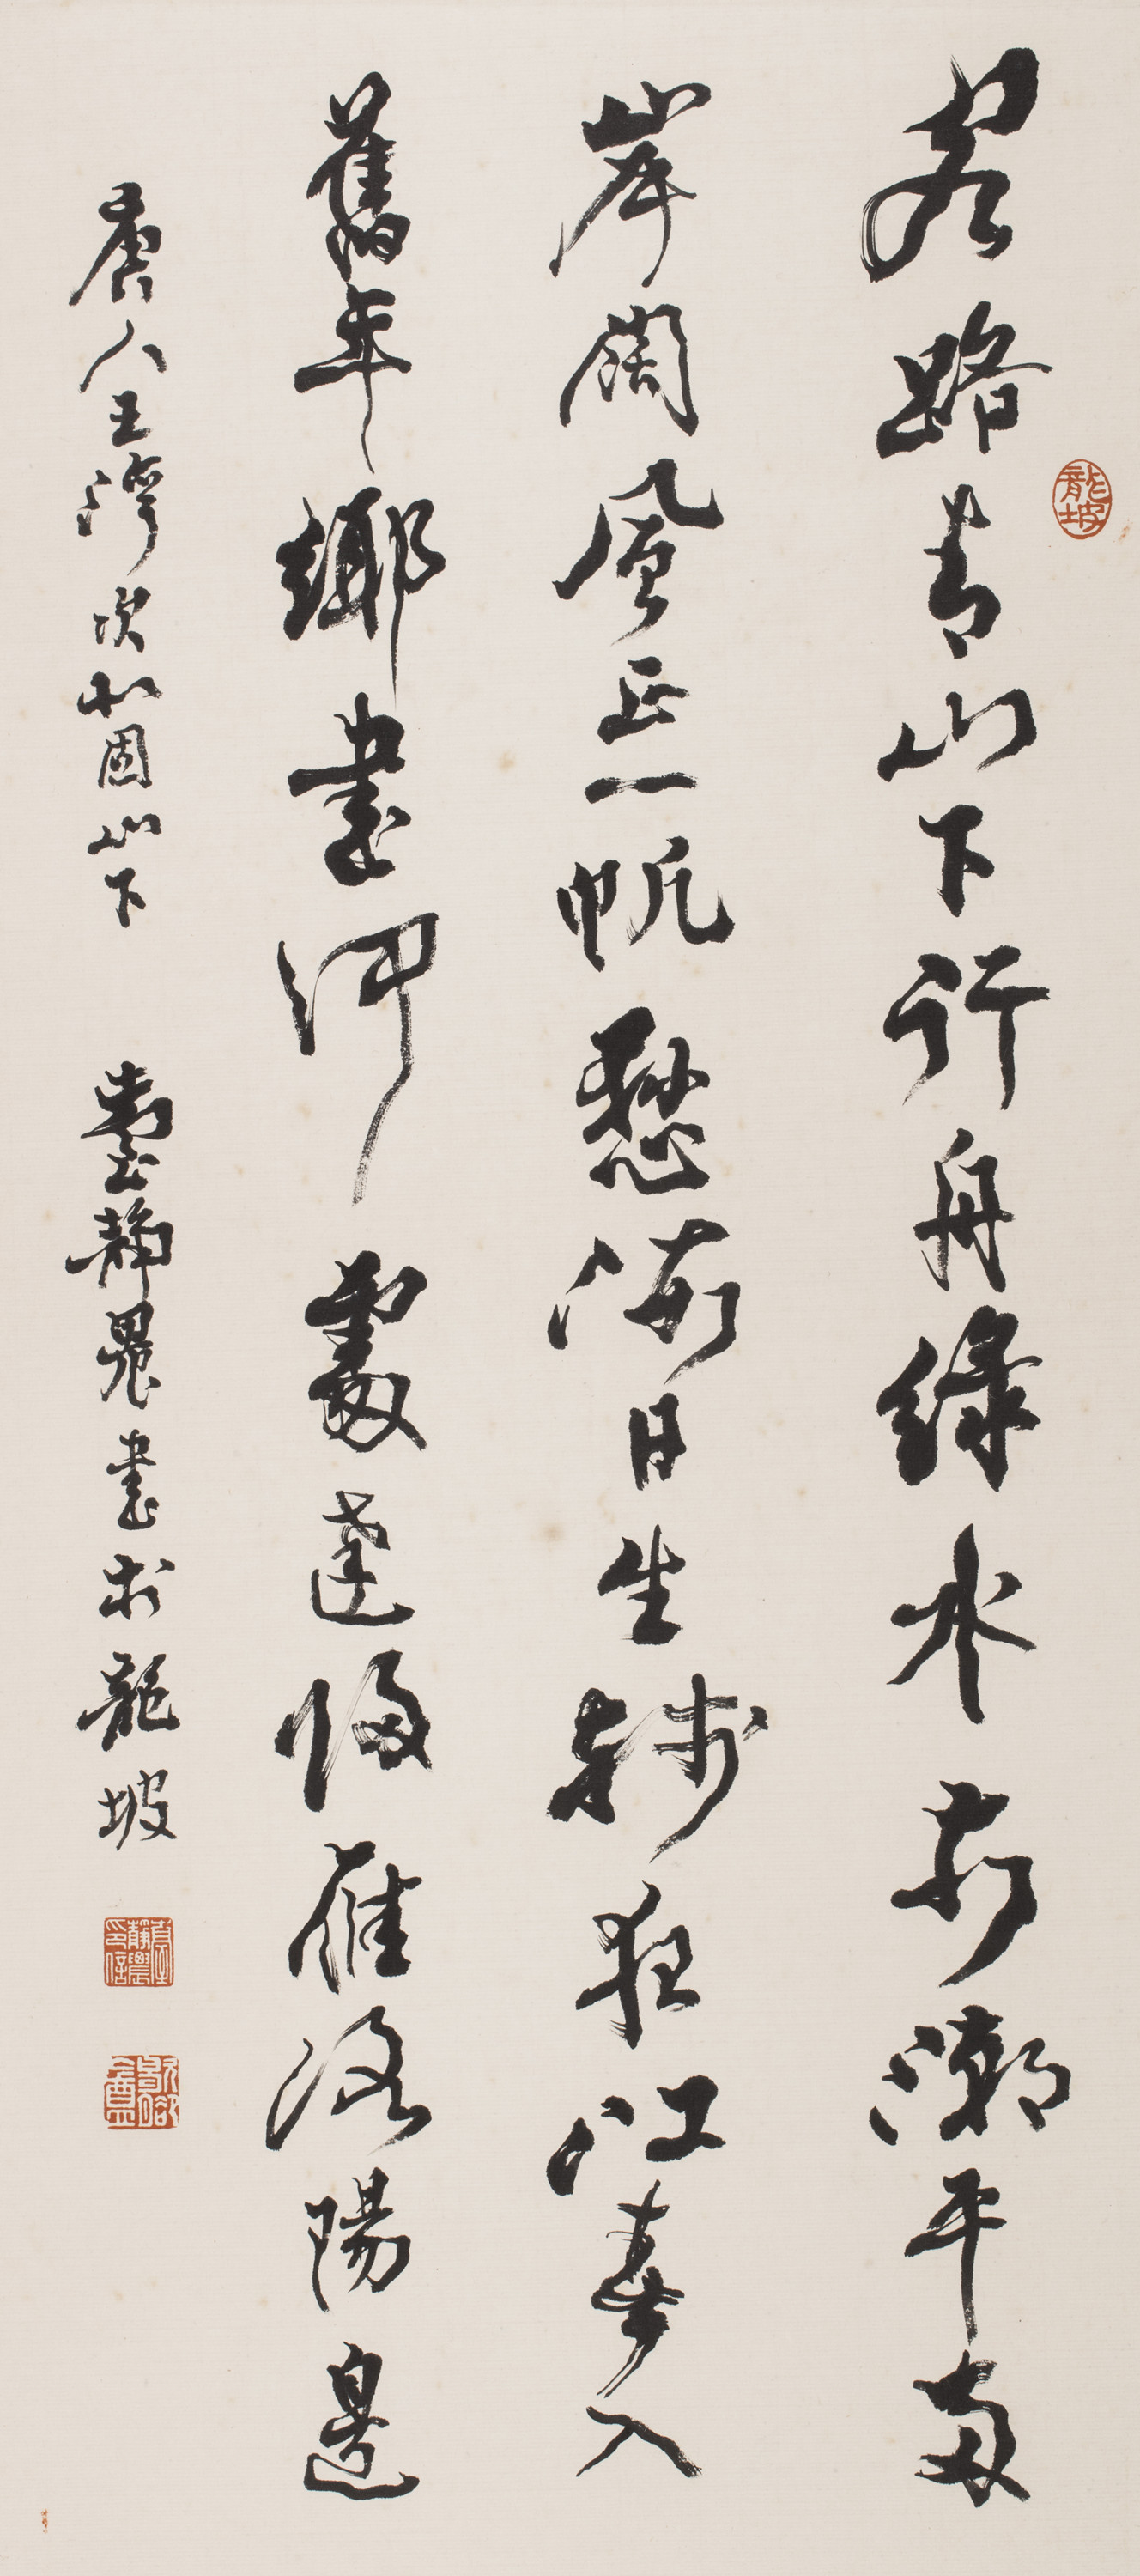 龍坡
客路青山下行舟綠水前潮平兩
岸闊風正一帆懸海日生殘夜江春入
舊年鄉書何處達歸雁洛陽邊
唐人王灣次北固山下 臺靜農書於龍坡
臺靜農印信
歇腳盦